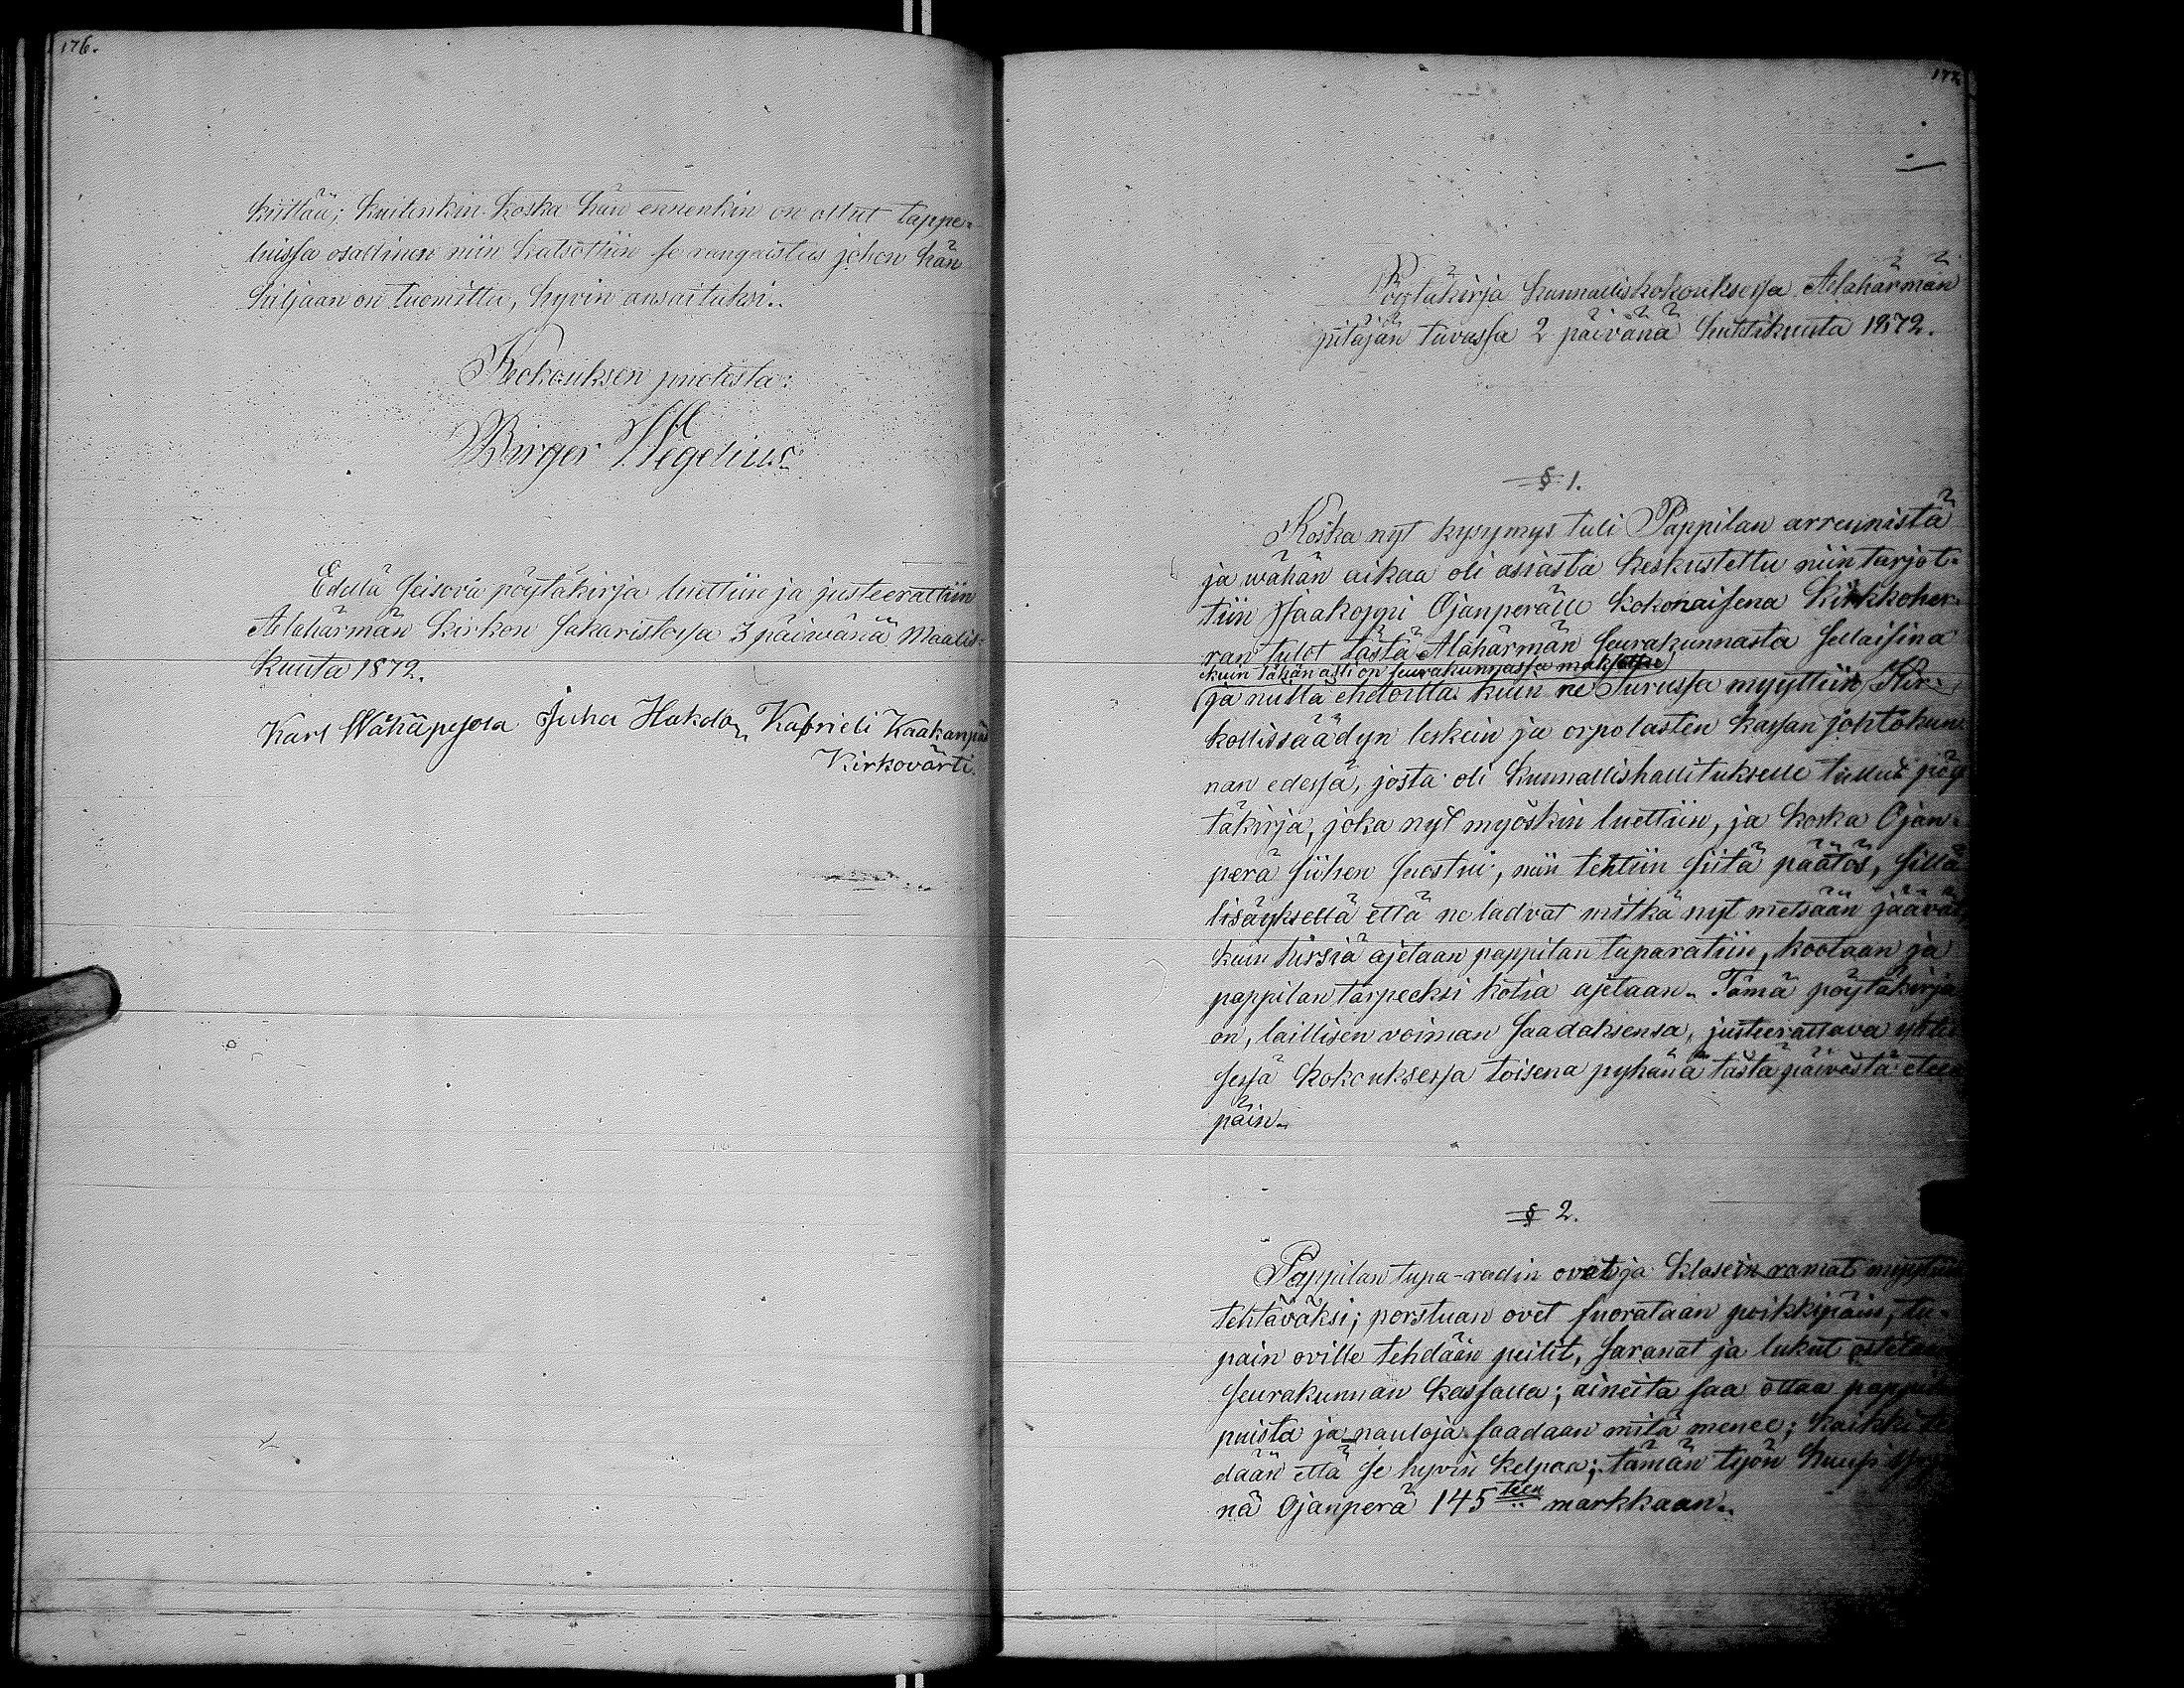 176.
kiittää; kuitenkin koska hän ennenkin on ollut tappe-
luissa osallinen niin katsottiin se rangaistus johon hän
hiljaan on tuomittu, hyvin ansaituksi.
Kokouksen puolesta:
Birger Hegelius.
Edellä seisova pöytäkirja luettiin ja justeerattiin
Alahärmän kirkon sakaristossa 3 päiwänä Maalis-
kuuta 1872.
Karl Wähäpesola Juha Hakola Kabrieli Kaakanpää
Kirkovärti.
177
Pöytäkirja kunnalliskokouksessa Alahärmän
pitäjän tuvassa 2 päivänä huhtikuuta 1872.
§ 1.
Koska nyt kysymys tuli Pappilan arrennista
ja wähän aikaa oli asiasta keskusteltu niin tarjot-
tiin Jaakoppi Ojanperälle kokonaisena Kirkkoher-
ran tulot tästä Alahärmän seurakunnasta sellaisina
kuin tähän asti on seurakunnassa maksettu
ja niillä ehdoilla kuin ne Turussa myyttiin Kir-
kollissäädyn leskein ja orpolasten kassan johtokun-
nan edessä, josta oli kunnallishallitukselle tullut pöy-
täkirja, joka nyt myöskin luettiin, ja koska Ojan-
perä siihen suostui, niin tehtiin siitä päätös, sillä
lisäyksellä että ne ladvat mitkä nyt metsään jäävät,
kuin hirsiä ajetaan pappilan tuparatiin, kootaan ja
pappilan tarpeeksi kotia ajetaan. Tämä pöytäkirja
on, laillisen voiman saadaksensa, justeerattava yhtei-
sessä kokouksessa toisena pyhänä tästä päivästä eteen
päin.
§ 2.
Pappilan tupa-radin ovet ja klasein ramat myytiin
tehtäväksi; porstuan ovet suorataan poikkipäin, tu-
pain oville tehdään peilit, saranat ja lukut ostetaan
seurakunnan kassalla; aineita saa ottaa pappilan
puista ja nauloja saadaan mitä menee; kaikki teh-
dään että se hyvin kelpaa; tämän työn huusi
nä Ojanperä 145 teen markkaan.